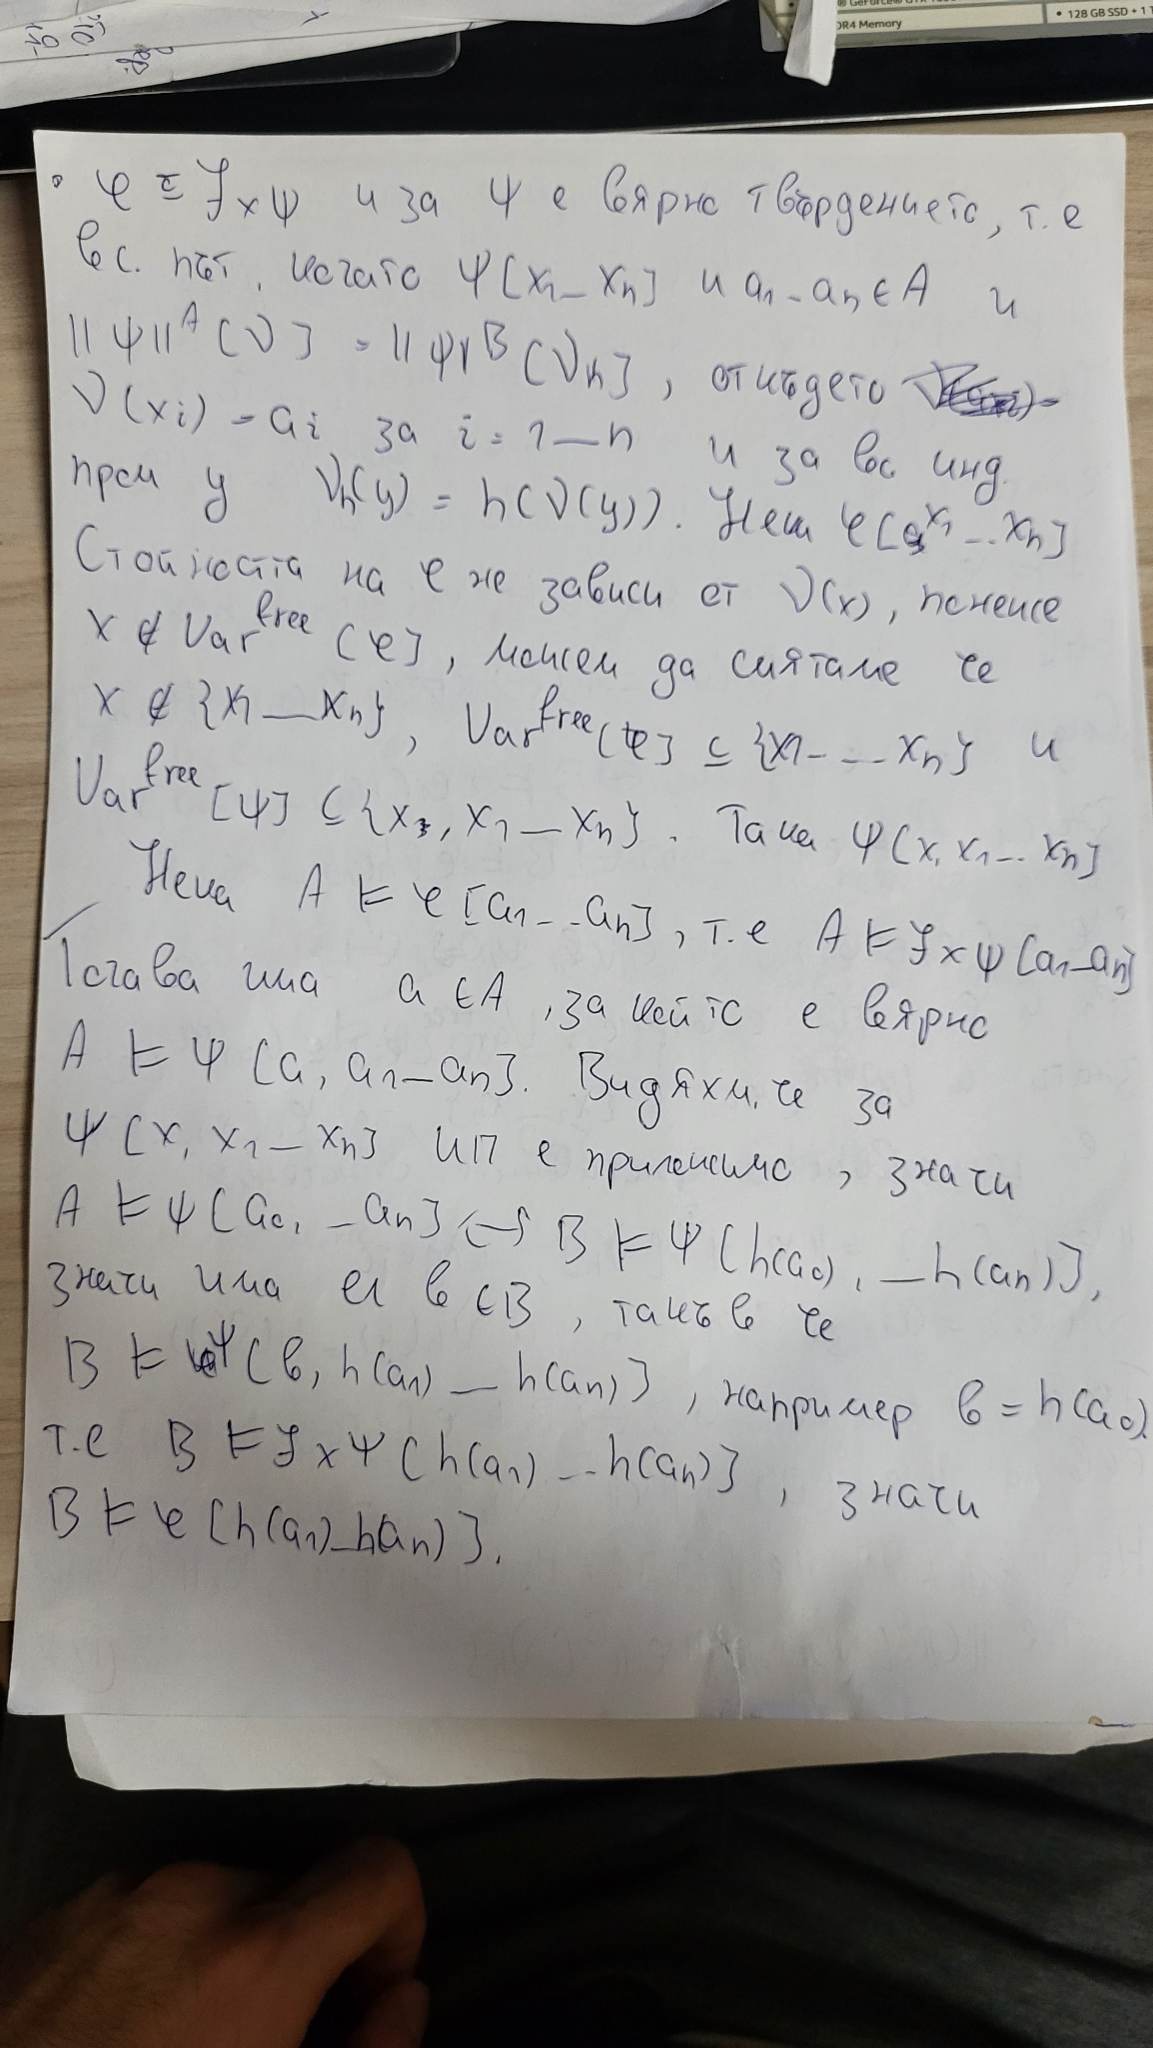 ® GeForce® GTX
DR4 Memory
• 128 GB SSD + 1 T
• φ ≡ ∃xψ и за ψ е вярно твърдението, т.е
вс. път, когато ψ[x1—xn] и a1–an ∈ A и
||ψ||^A[ν] = ||ψ||^B[νh], откъдето
ν(xi) = ai за i = 1—n и за вс. инд.
пром y νh(y) = h(ν(y)). Нека φ[x1--xn]
Стойността на φ не зависи от ν(x), понеже
x ∉ Var^free[φ], можем да считаме че
x ∉ {x1—xn}, Var^free[φ] ⊆ {x1-—xn} и
Var^free[ψ] ⊆ {x, x1—xn}. Така ψ[x, x1--xn]
Нека A ⊨ φ[a1--an], т.е A ⊨ ∃xψ[a1–an]
Тогава има a ∈ A, за който е вярно
A ⊨ ψ[a, a1–an]. Видяхм, че за
ψ[x, x1—xn] ИП е приложимо, значи
A ⊨ ψ[a0, –an] ↔ B ⊨ ψ[h(a0), —h(an)],
значи има ел b ∈ B, такъв че
B ⊨ ψ[b, h(a1)—h(an)], например b = h(a0).
т.е B ⊨ ∃xψ[h(a1)--h(an)], значи
B ⊨ φ[h(a1)–h(an)].